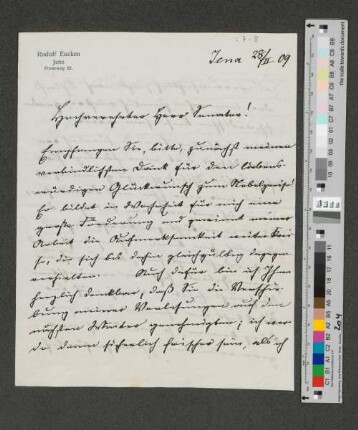 Rudolf Eucken
Jena
Jena 28/II 09
Hochverehrter Herr Senator!
Empfangen Sie, bitte, zunächst meinen
verbindlichsten Dank für den liebens-
würdigen Glückwunsch zum Nobelpreise!
Er bildet in Wahrheit für mich eine
große Förderung und gewinnt meiner
Arbeit die Aufmerksamkeit weiter Krei-
se, die sich bis dahin gleichgültig dagegen
verhielten. Auch dafür bin ich Ihnen
herzlich dankbar, daß Sie die Verschie-
bung meiner Vorlesungen auf den
nächsten Winter genehmigten; ich wer-
de dann sicherlich frischer sein, als ich